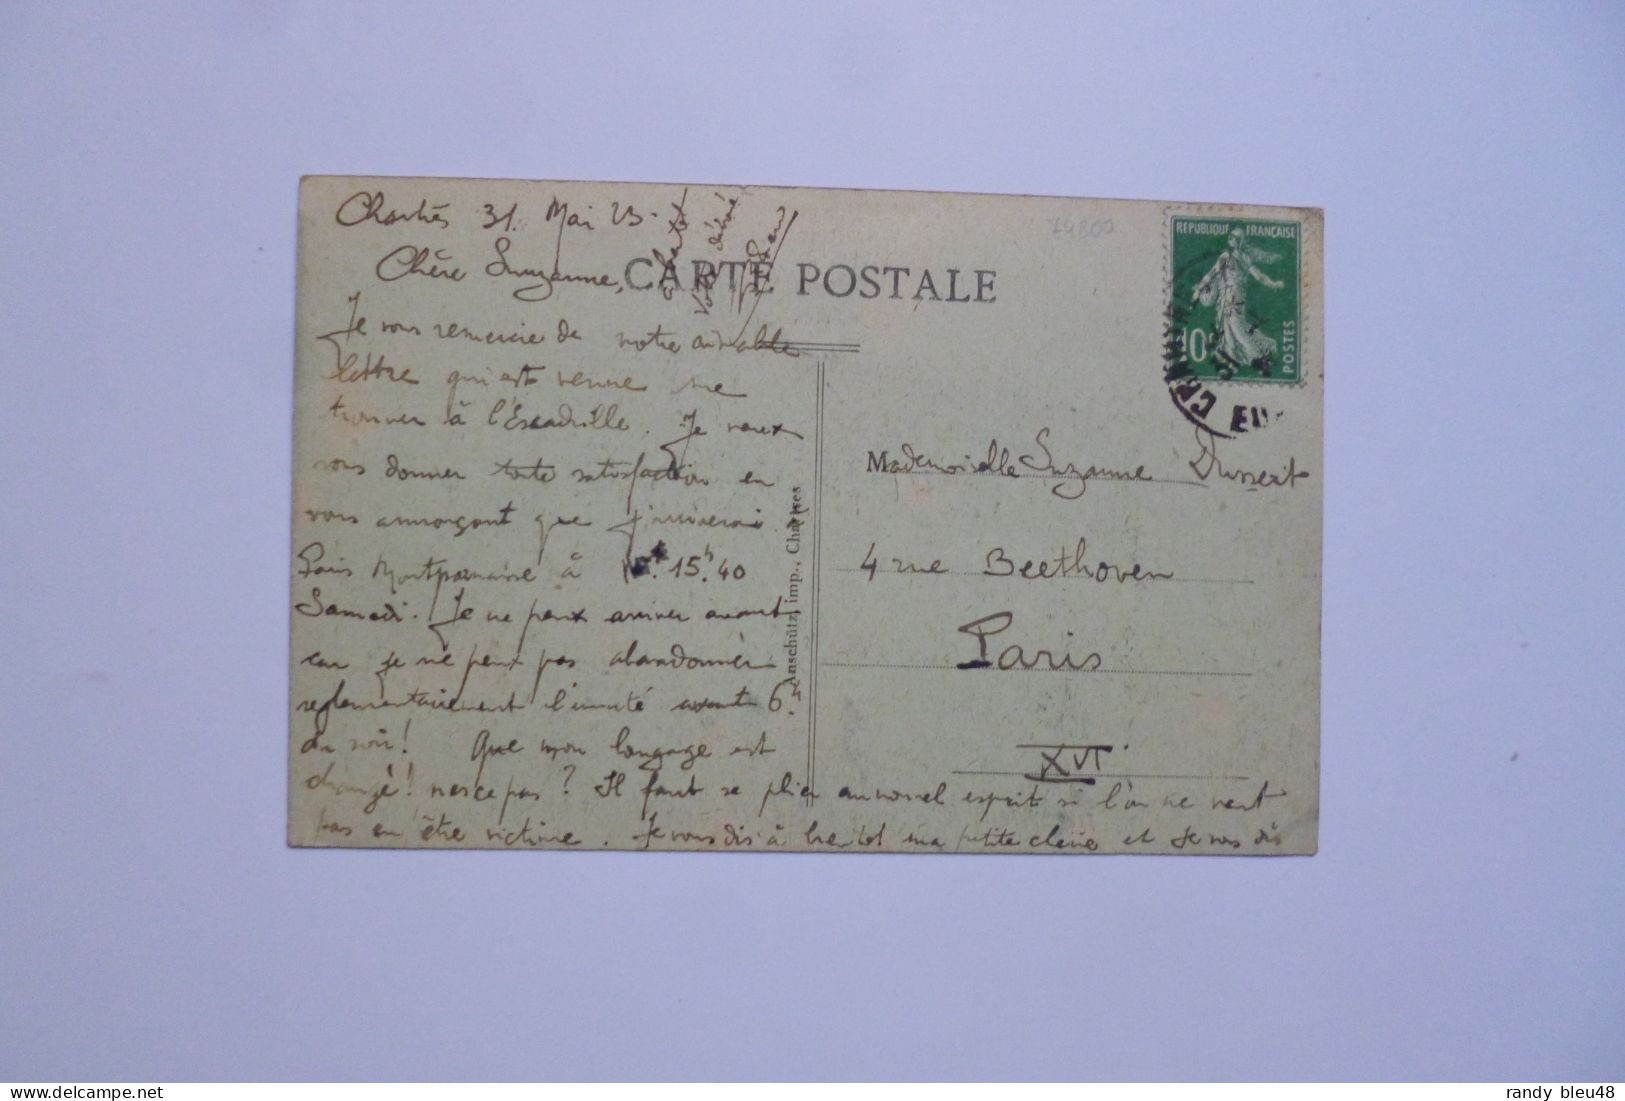 Chartres 31. Mai 23.
Chère Suzanne,
CARTE POSTALE
Je vous remercie de votre aimable
lettre qui est venue me
trouver à l'Escadrille. Je veux
vous donner toute satisfaction en
vous annonçant que j'arriverai à
Paris Montparnasse à 15h.40
Samedi. Je ne peux arriver avant
car je ne peux pas abandonner
reglementairement l'unité avant 6h
du soir! Que mon langage est
changé! nesce pas? Il faut se plier au nouvel esprit si l'on ne veut
pas en être victime. Je vous dis à bientot ma petite cherie et je vous dis
à bientot
Votre dévoué
Anschütz, imp., Chartres
74800
REPUBLIQUE FRANÇAISE
10
POSTES
Mademoiselle Suzanne Dussert
4 rue Beethoven
Paris
XVI
delcampe.net
randy_bleu48